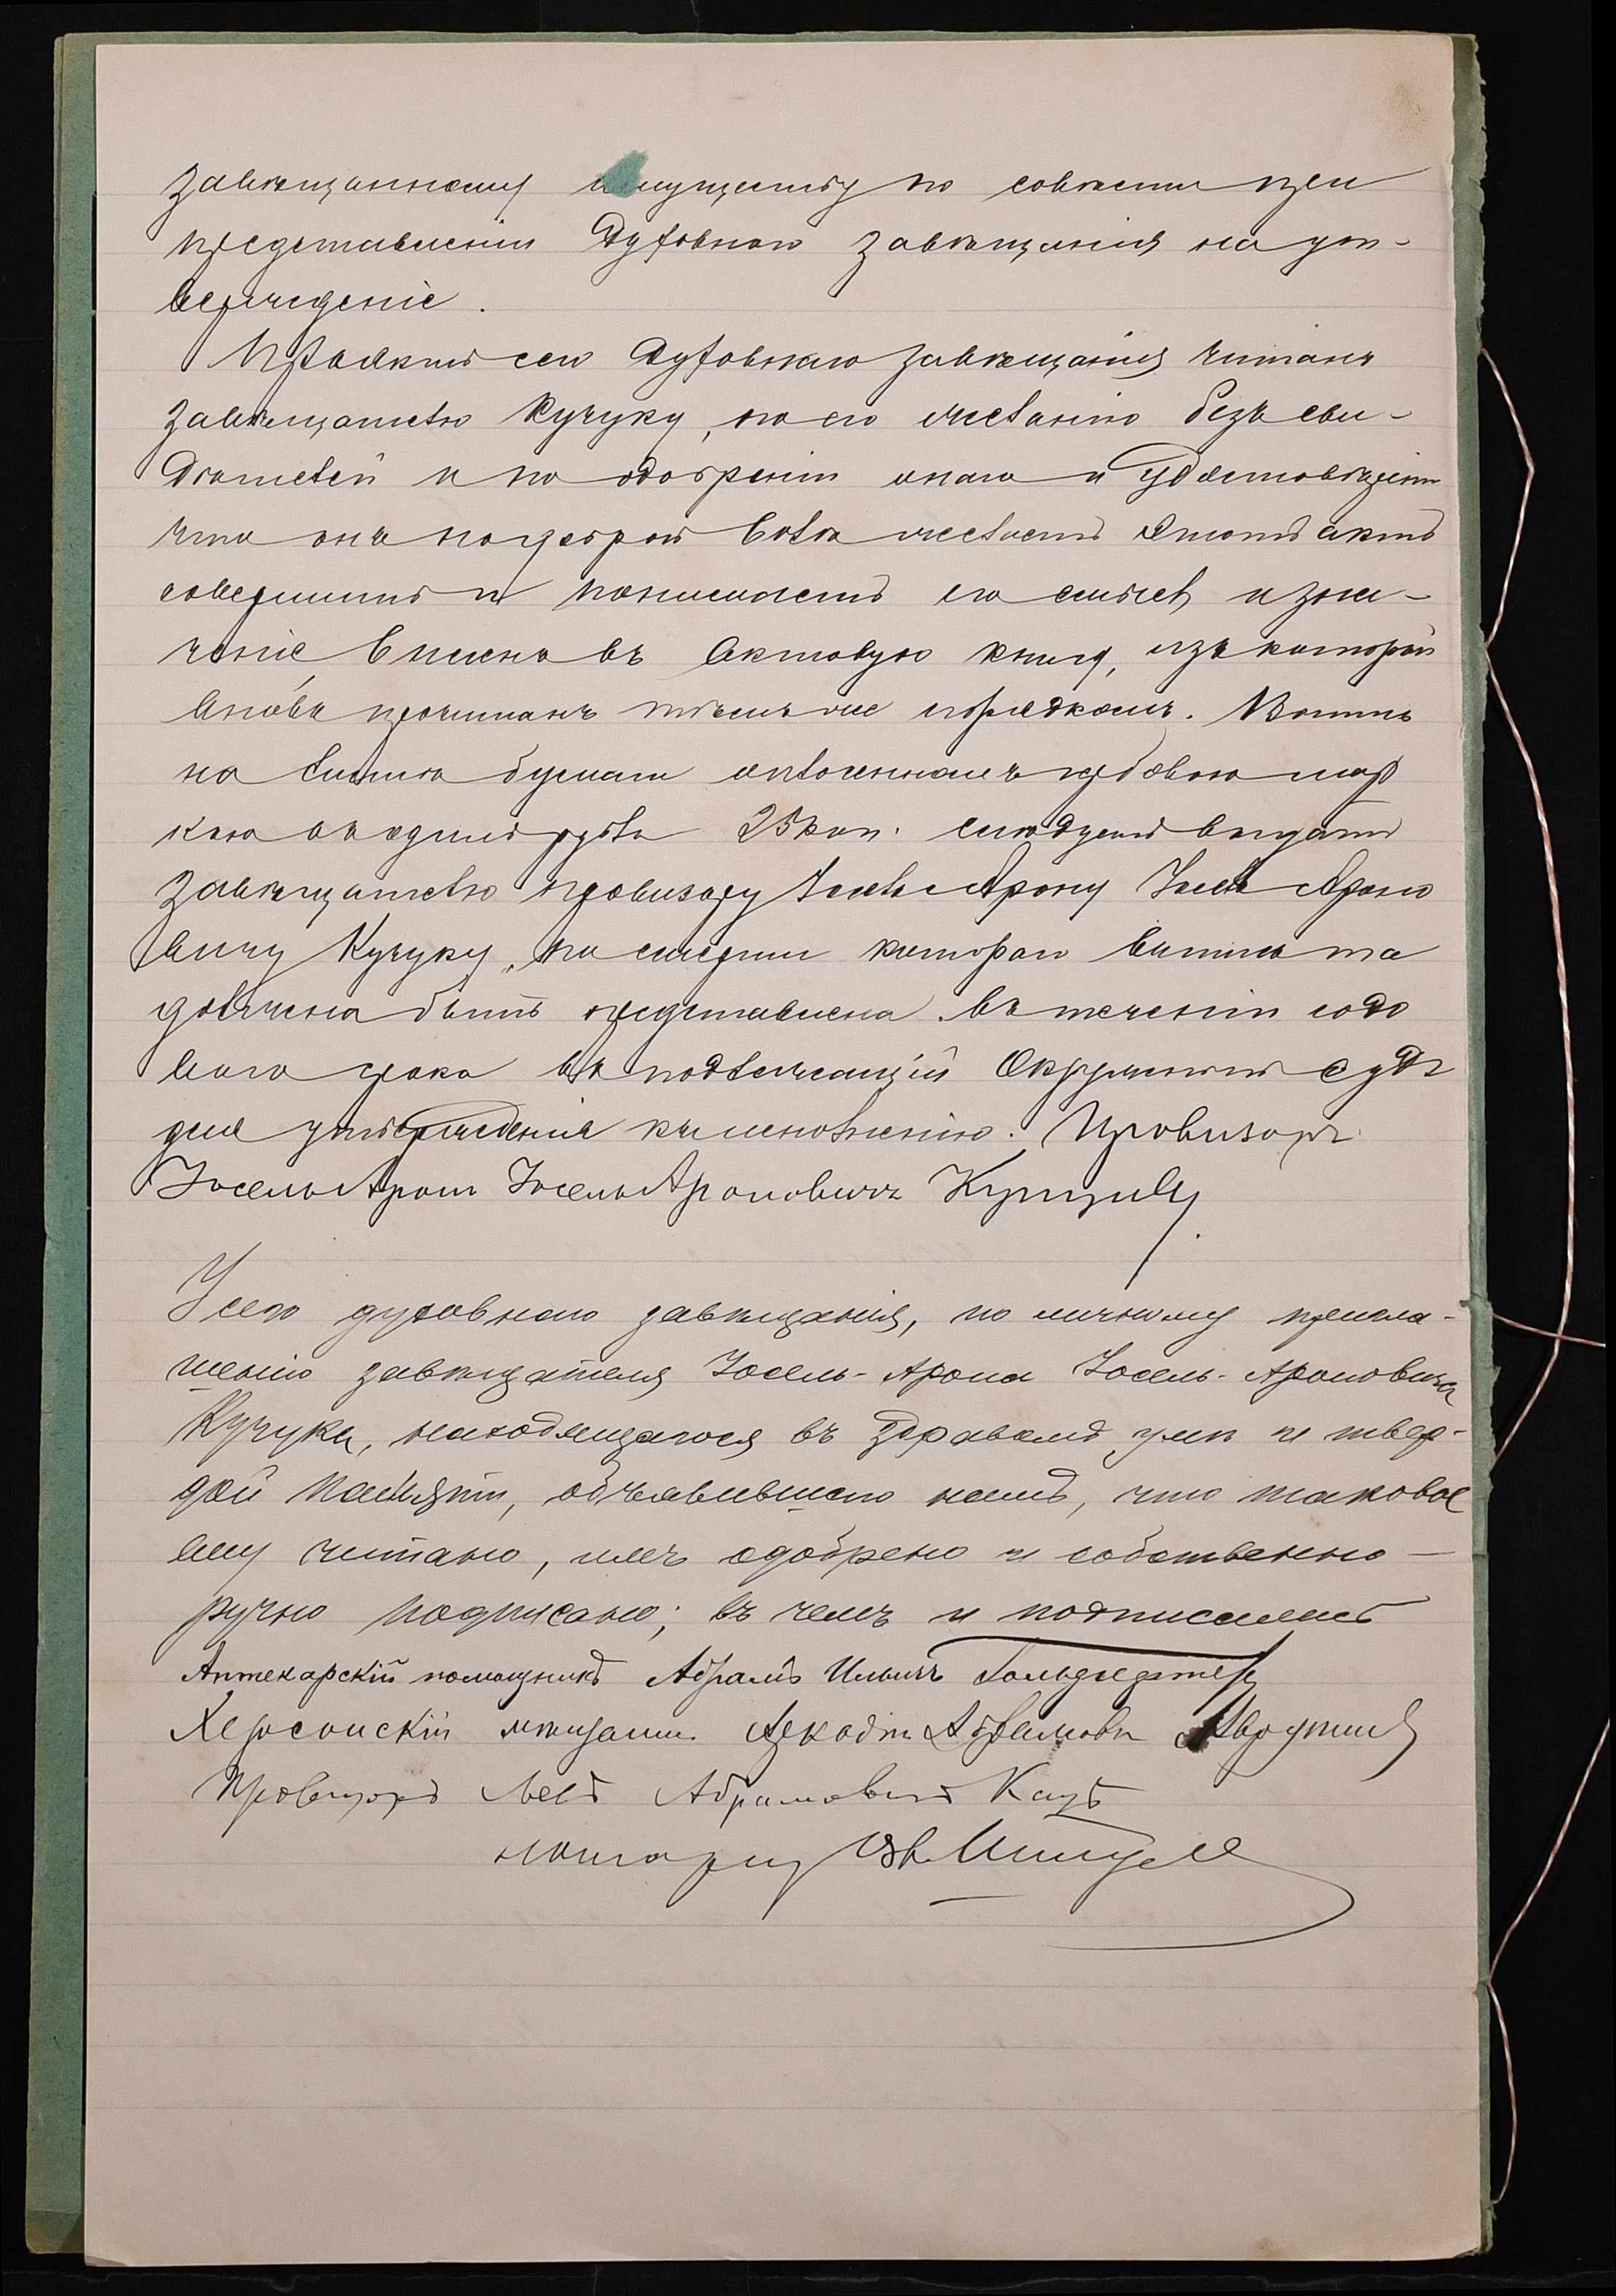 завѣщанному имуществу по совѣсти при
представленіи Духовнаго завѣщанія на ут-
вержденіе.
Проэктъ сего Духовнаго завѣщанія читанъ
завѣщателю Кучуку, по его желанію безъ сви-
дѣтелей и по одобреніи онаго и удостовѣреніи
что онъ по доброй волѣ желаетъ этотъ актъ
совершить и понимаетъ его смыслъ и зна-
ченіе, внесенъ въ актовую книгу, изъ которой
вновь прочитанъ тѣмъ же порядкомъ. Выпись
на листѣ бумаги оплоченномъ гербовою мар
кою въ одинъ рубль 25 коп. слѣдуетъ выдать
завѣщателю провизору Іосель-Арону Іосель-Ароно
вичу Кучуку, по смерти котораго выпись та
должна быть представлена въ теченіи годо
ваго срока въ подлежащій Окружный Судъ
для утвержденія къ исполненію. Провизоръ
Іосель-Аронъ Іосель-Ароновичъ Кучукъ.
У сего духовнаго завѣщанія, по личному пригла-
шенію завѣщателя Іосель-Арона Іосель-Ароновича
Кучука, находящагося въ здравомъ умѣ и твер-
дой памяти, объявившаго намъ, что таковое
ему читано, имъ одобрено и собственно-
ручно подписано; въ чемъ и подписались
Аптекарскій помощникъ Абрамъ Ильичъ
Херсонскій мѣщанин Абрамовъ
Провизоръ Левъ Абрамовичъ Кацъ
нотаріус